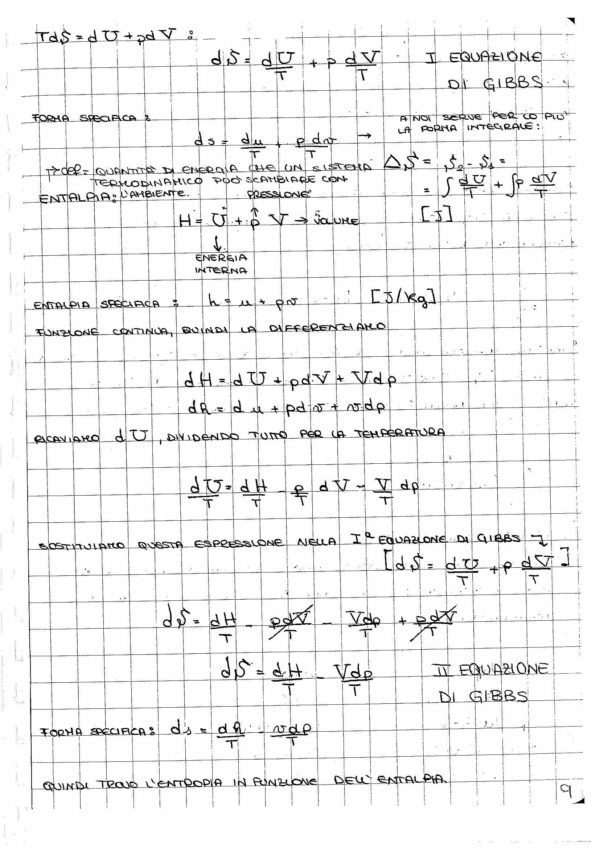 TdS = dU + pdV :
dS = dU/T + p dV/T    I EQUAZIONE
DI GIBBS
FORMA SPECIFICA :
ds = du/T + p dv/T →
A NOI SERVE PER LO PIÙ
LA FORMA INTEGRALE:
ΔS = S2 - S1 =
= ∫ dU/T + ∫ p dV/T
[J]
DEF = QUANTITÀ DI ENERGIA CHE UN SISTEMA
TERMODINAMICO PUÒ SCAMBIARE CON
ENTALPIA: L'AMBIENTE.
PRESSIONE
↑
H = U + p V → VOLUME
↓
ENERGIA
INTERNA
ENTALPIA SPECIFICA : h = u + pv    [J/kg]
FUNZIONE CONTINUA, QUINDI LA DIFFERENZIAMO
dH = dU + pdV + Vdp
dh = du + pdv + vdp
RICAVIAMO dU, DIVIDENDO TUTTO PER LA TEMPERATURA
dU/T = dH/T - p/T dV - V/T dp
SOSTITUIAMO QUESTA ESPRESSIONE NELLA Iª EQUAZIONE DI GIBBS
[dS = dU/T + p dV/T]
dS = dH/T - pdV/T - Vdp/T + pdV/T
dS = dH/T - Vdp/T    II EQUAZIONE
DI GIBBS
FORMA SPECIFICA: ds = dh/T - vdp/T
QUINDI TROVO L'ENTROPIA IN FUNZIONE DELL'ENTALPIA.
9